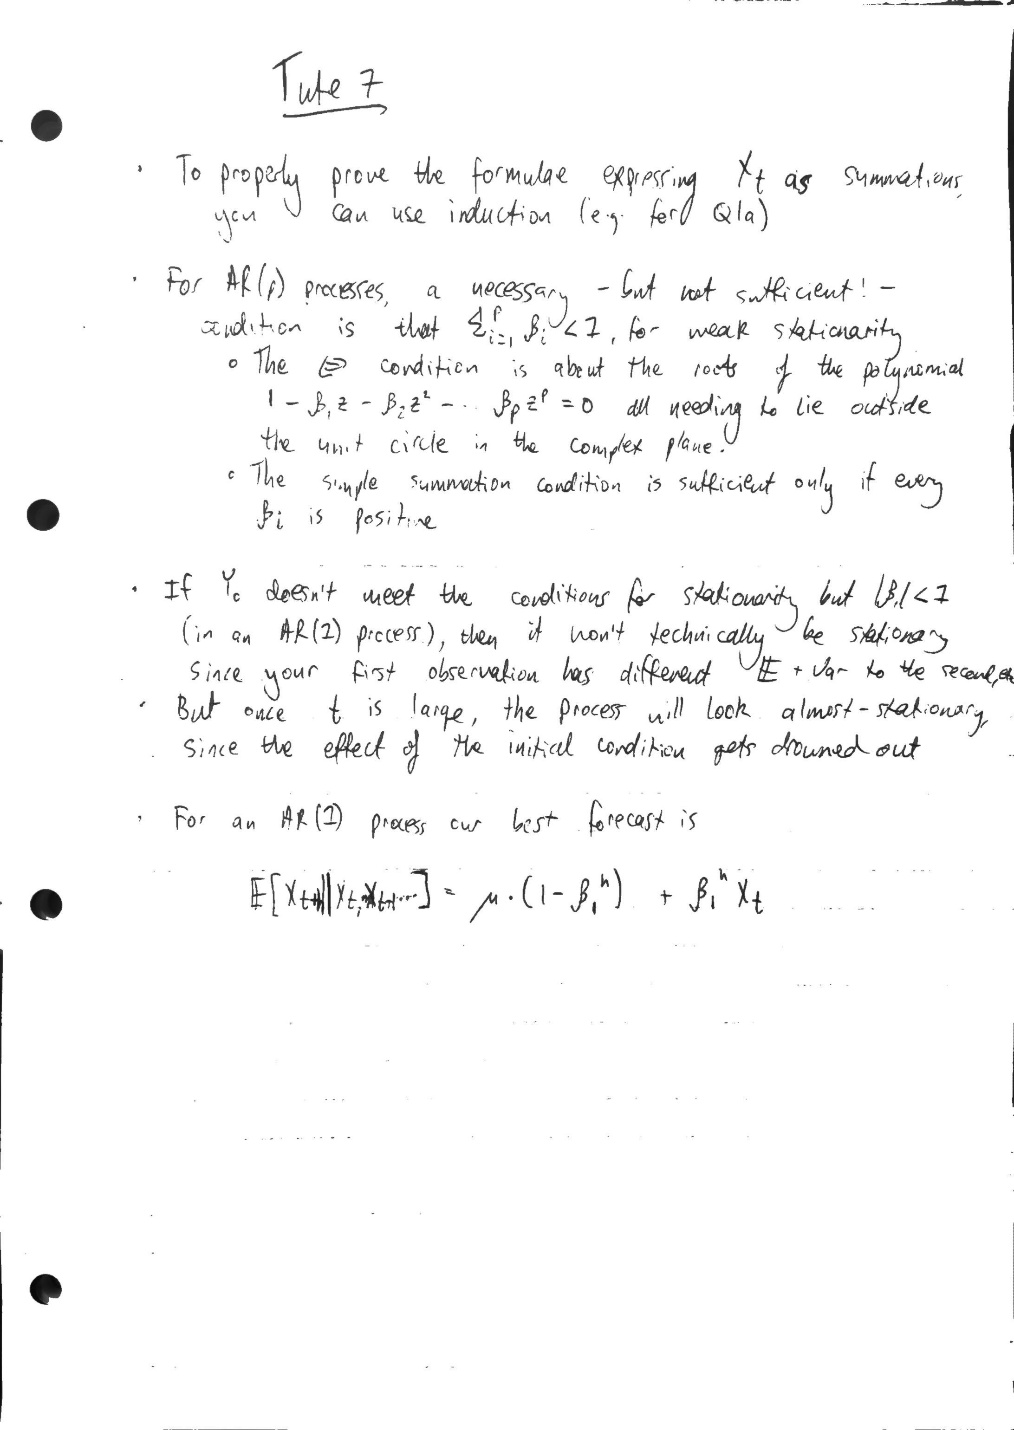 Tute 7
• To properly prove the formulae expressing Xt as summations,
you can use induction (e.g. for Q1a)
• For AR(p) processes, a necessary - but not sufficient! -
condition is that Σᵖᵢ₌₁ βᵢ < 1, for weak stationarity
∘ The ⇔ condition is about the roots of the polynomial
1 - β₁z - β₂z² - ... βₚzᵖ = 0 all needing to lie outside
the unit circle in the complex plane.
∘ The simple summation condition is sufficient only if every
βᵢ is positive
• If Y₀ doesn't meet the conditions for stationarity but |β₁| < 1
(in an AR(1) process), then it won't technically be stationary
since your first observation has different 𝔼 + Var to the second, etc
• But once t is large, the process will look almost-stationary,
since the effect of the initial condition gets drowned out
• For an AR(1) process our best forecast is
𝔼[Xt+h|Xt, Xt-1...] = μ·(1 - β₁ʰ) + β₁ʰ Xt